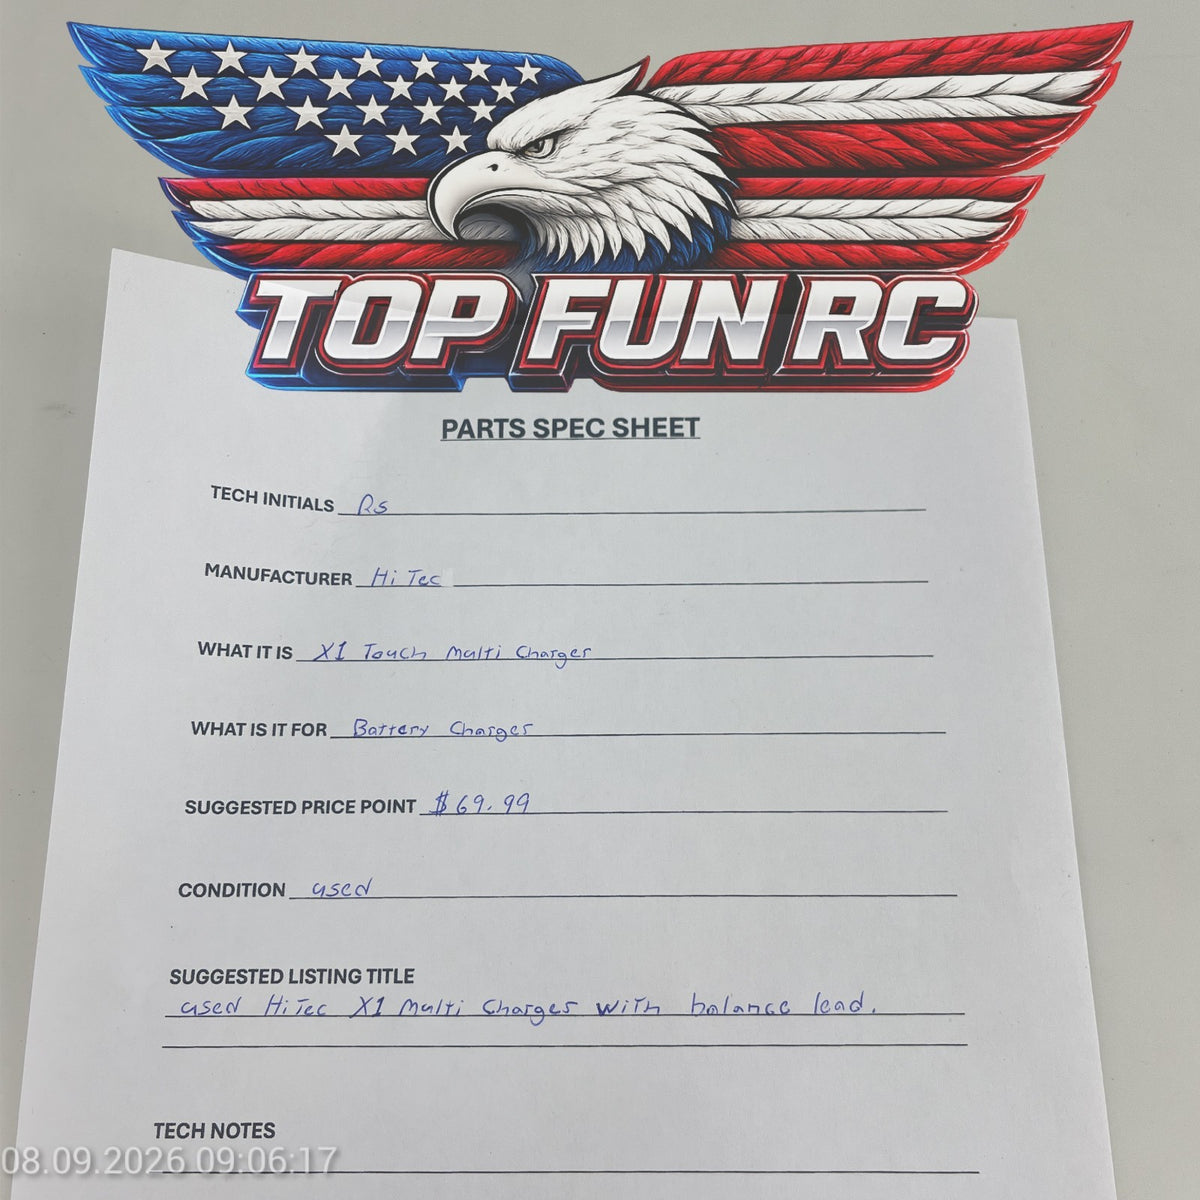 TOP FUN RC
PARTS SPEC SHEET
TECH INITIALS Rs
MANUFACTURER Hi Tec
WHAT IT IS X1 Touch Multi Charger
WHAT IS IT FOR Battery Charger
SUGGESTED PRICE POINT $69.99
CONDITION used
SUGGESTED LISTING TITLE
used HiTec X1 Multi Charger with balance lead.
TECH NOTES
08.09.2026 09:06:17